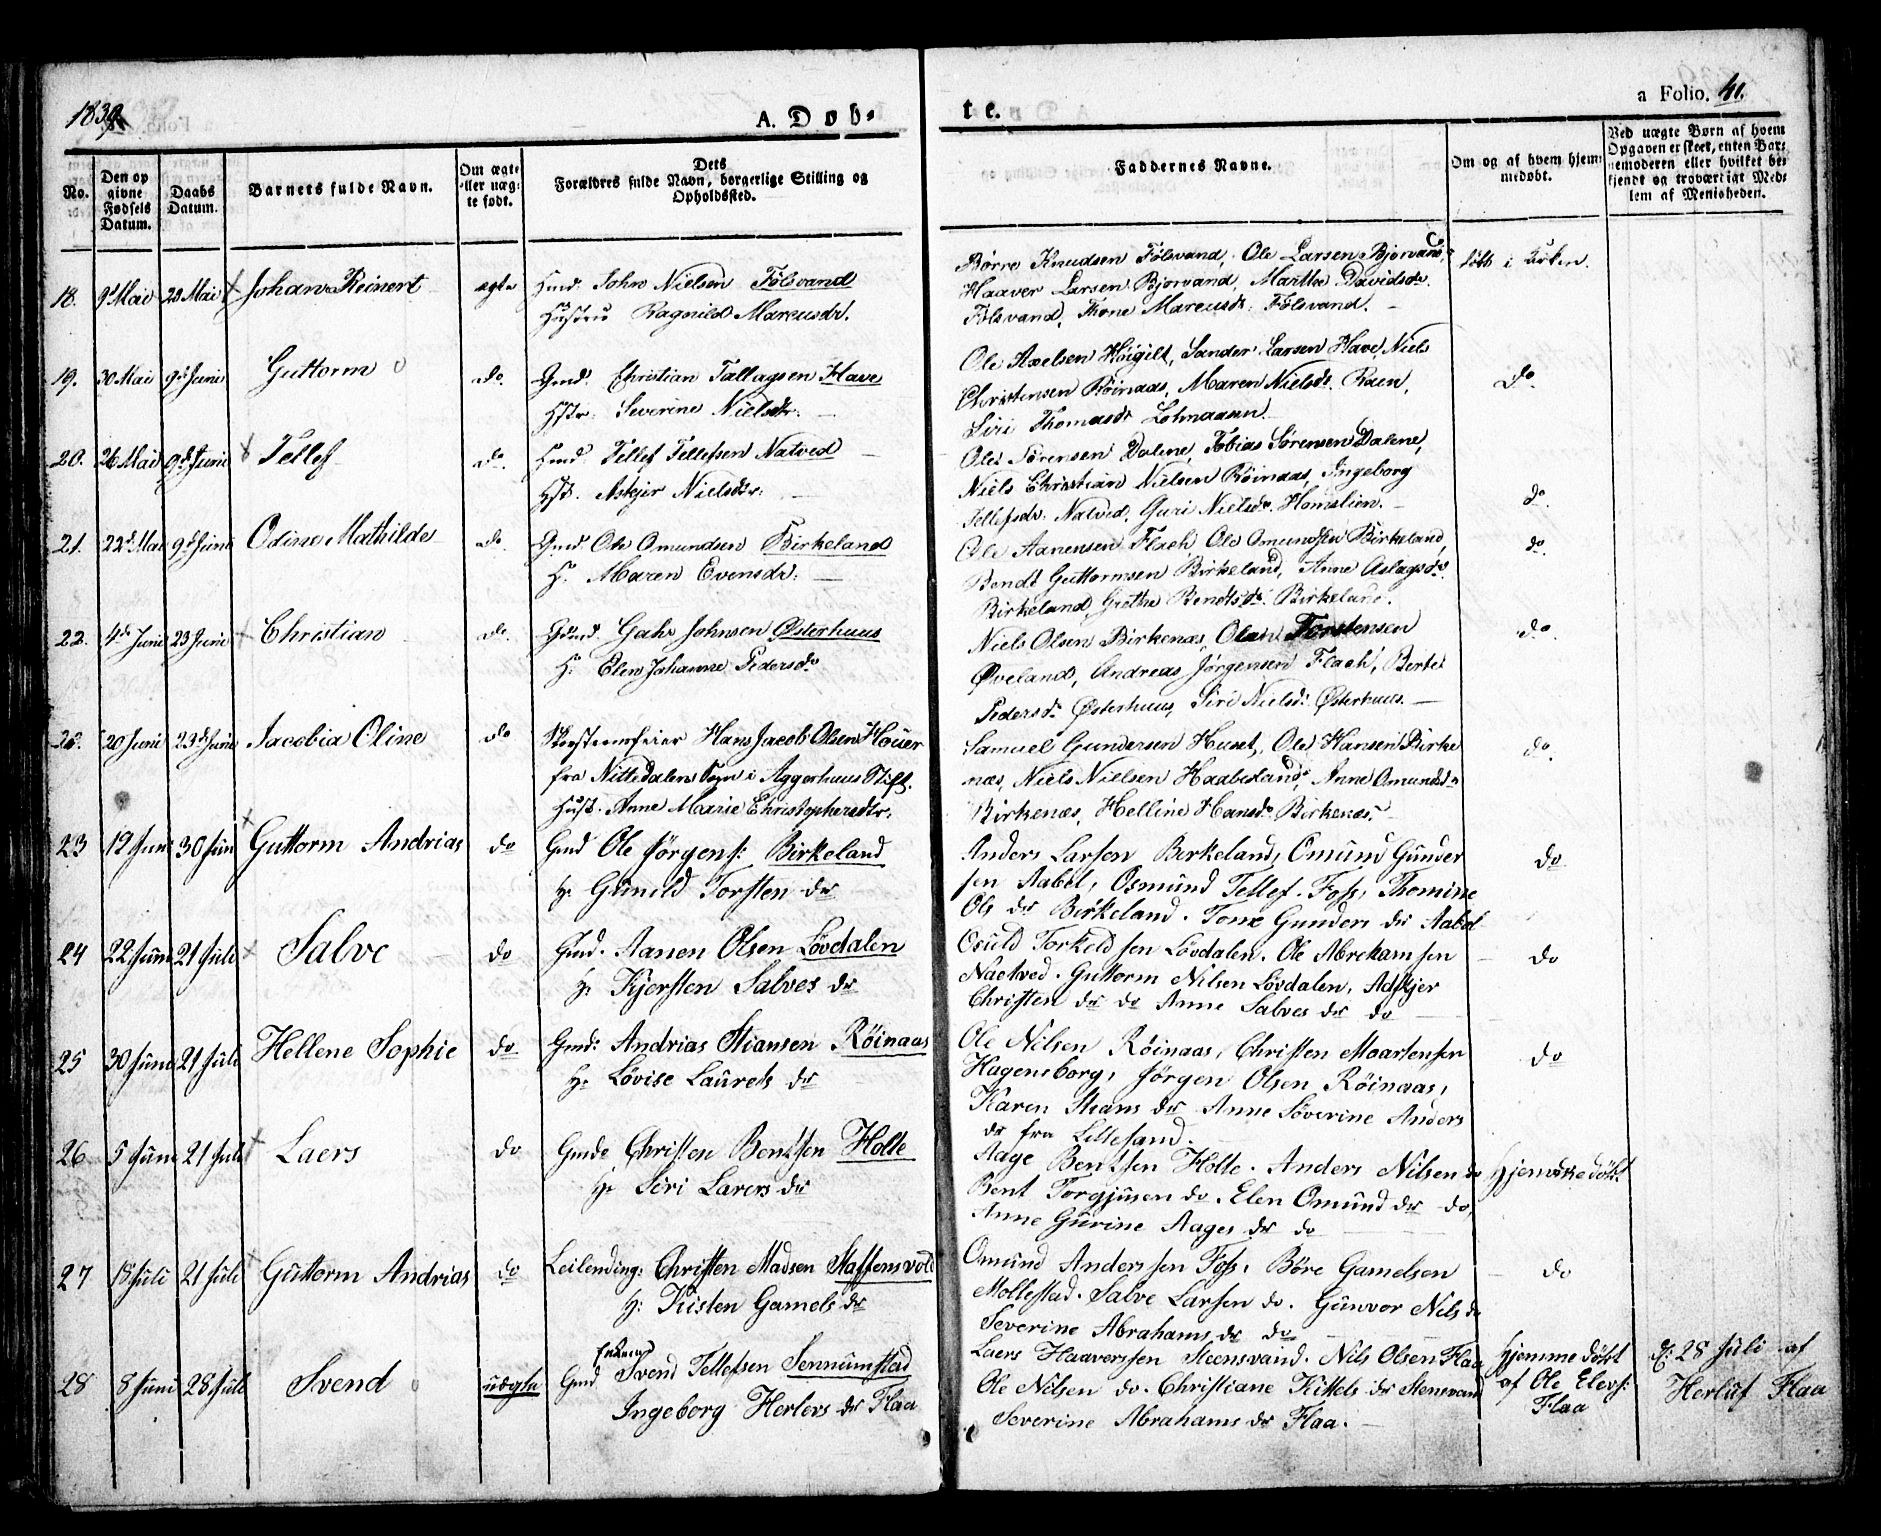 1839
A. Døb-
te.
a Folio. 41.
No.
Den op
givne
Fødsels
Datum.
Daabs
Datum.
Barnets fulde Navn.
Om ægte
eller uæg-
te født.
Dets
Forældres fulde Navn, borgerlige Stilling og
Opholdssted.
Faddernes Navne.
Om og af hvem hjem-
medøbt.
Ved uægte Børn af hvem
Opgaven er skeet, enten Bar-
nemoderen eller hvilket be-
kjendt og troværdigt Med-
lem af Menigheden.
18. 9d Mai 29 Mai Johan Reinert ægte Gmd. John Nielsen Fölsvand
Hustru Ragnild Marcusdr.
Börre Knudsen Fölsvand, Ole Larsen Bjorvand,
Haaver Larsen Bjorvand, Marthe Davidsdr.
Fölsvand, Thone Marcusdr. Fölsvand.
döbt i Kirken.
19. 30 Mai 9d Juni Guttorm do. Gmd. Christian Tallagsen Have
Hstr. Severine Nielsdr.
Ole Axelsen Höigilt, Sander Larsen Have, Niels
Christensen Röinaas, Maren Nielsdr. Raen,
Siri Thomasdr
do
20. 26 Mai 9d Juni Tellef do. Gmd. Tellef Tellefsen Natved
Hst. Askjer Nielsdtr.
Ole Sörensen Dalene, Tobias Sörensen Dalene,
Niels Christian Nielsen Röinaas, Ingeborg
Tellefsdr. Natved, Guri Nielsdr. Homslien.
do.
21. 22d Mai 9d Juni Odine Mathilde do. Gmd. Ole Omundsen Birkeland
H. Maren Evensdr.
Ole Aanensen Flach, Ole Omundsen Birkeland,
Bendt Guttormsen Birkeland, Anne Aslagsdr.
Birkeland, Grethe Bendtsdr. Birkeland.
do.
22. 4de Juni 23 Juni Christian do. Gmd. Gahr Johnsen Østerhuus
H. Elen Johanne Pedersdr
Niels Olsen Birkenæs, Olav Torstensen
Øveland, Andreas Jörgensen Flach, Berte
Pedersdr. Østerhuus, Siri Nielsd. Østerhuus.
do.
20 Juni 23d Juni Jacobia Oline do Skorsteensfeier Hans Jacob Olsen Höuer
fra Nittedalens Sogn i Aggerhuus Stift.
Hust. Anne Marie Christophersdtr.
Samuel Gundersen Huset, Ole Hansen Birke
næs, Niels Nielsen Haabesland, Anne Omundsdr
Birkenæs, Helline Hansdr. Birkenæs.
do.
23 12 Juni 30 Juni Guttorm Andrias do Gmd Ole Jörgens: Birkeland
H: Gunild Torsten dr
Anders Larsen Berkeland, Omund Gunder
sen Aaböl, Osmund Tellef. Foss, Thomine
Ols dr Birkeland. Tone Gunders dr Aaböl
do
24 22 Juni 21 Juli Salve do Gmd. Aanen Olsen Lövdalen
H: Kjersten Salves dr
Osuld Torkeld sen Lövdalen. Ole Abreham sen
Naetved. Guttorm Nilsen Lövdalen, Adskjer
Christen dr do Anne Salves dr do
do
25 30 Juni 21 Juli Hellene Sophie do Gmd: Andrias Stiansen Röinaas
H: Lövise Laurets dr
Ole Nilsen Röinaas, Christen Moartensen
Hagensborg, Jörgen Olsen Röinaas,
Karen Stians dr Anne Söverine Anders
dr fra Lillesand.
do
26 5 Juni 21 Juli Laers do Gmd. Christen Bentsen Holte
H: Siri Larers dr
Aage Bentsen Holte. Anders Nilsen do
Bent Torgjusen do. Elen Omund dr do,
Anne Gurine Aages dr do
Hjemikke döbt
27 18 Juli 21 Juli Guttorm Andrias do Leilending: Christen Madsen Staffensvold
H: Kisten Gamels dr
Omund Andersen Foss, Böre Gamelsen
Mollestad. Salve Larsen do. Gunvor Nils dr
Severine Abrahams dr do
do
28 8 Juni 28 Juli Svend uægte Gmd Enkem Svend Tellefsen Sennumstad
Ingeborg Herlovs dr Flaa
Laers Haaverssen Steensvand. Nils Olsen Flaa
Ole Nilsen do. Christiane Kittels dr Stensvand
Severine Abrahams dr Flaa.
Hjemme döbt
af Ole Elevs:
Flaa
d: 28 Juli af
Herluf Flaa